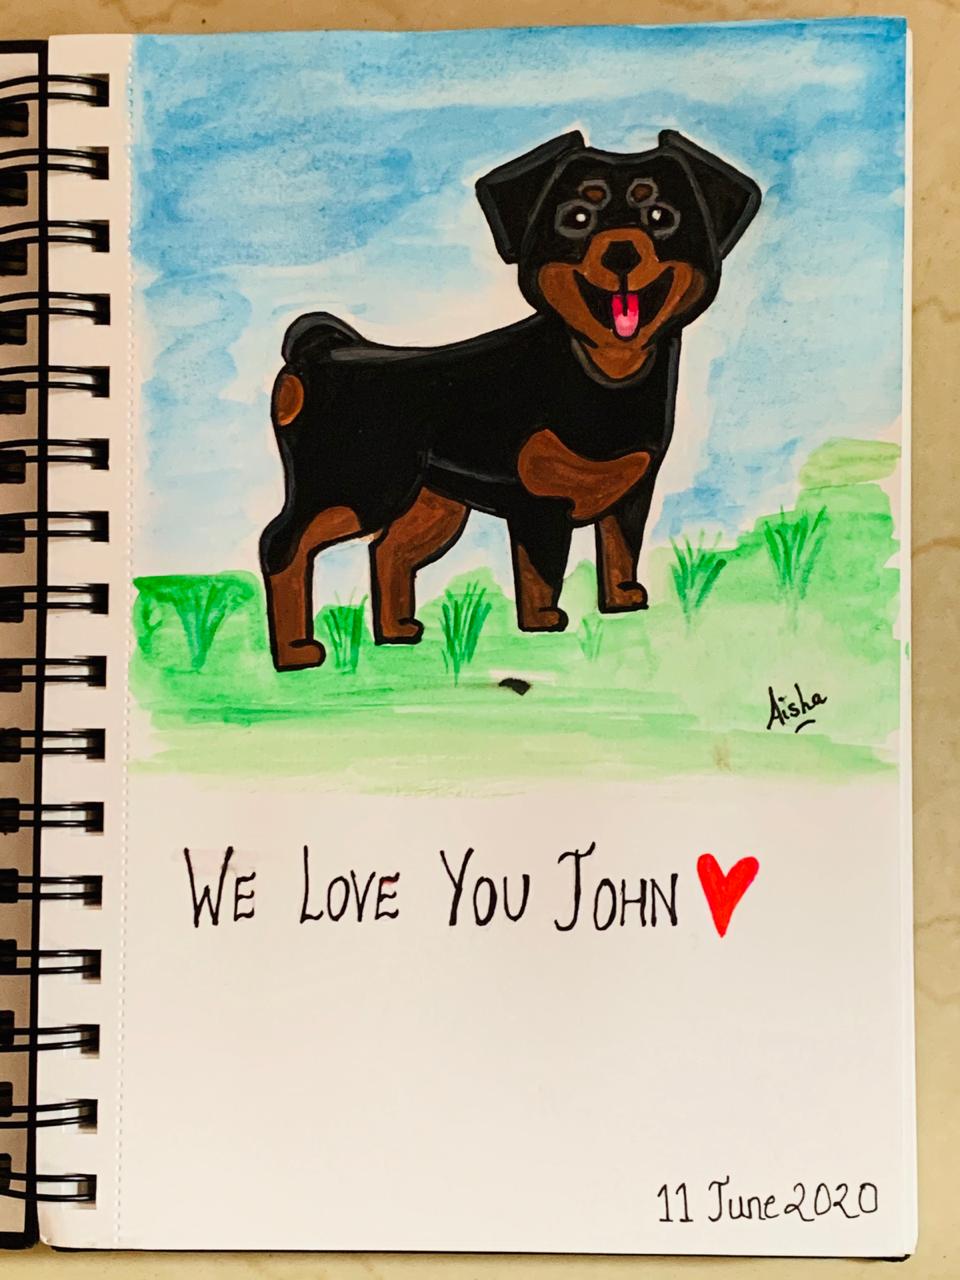 Aisha
WE LOVE YOU JOHN
11 June 2020